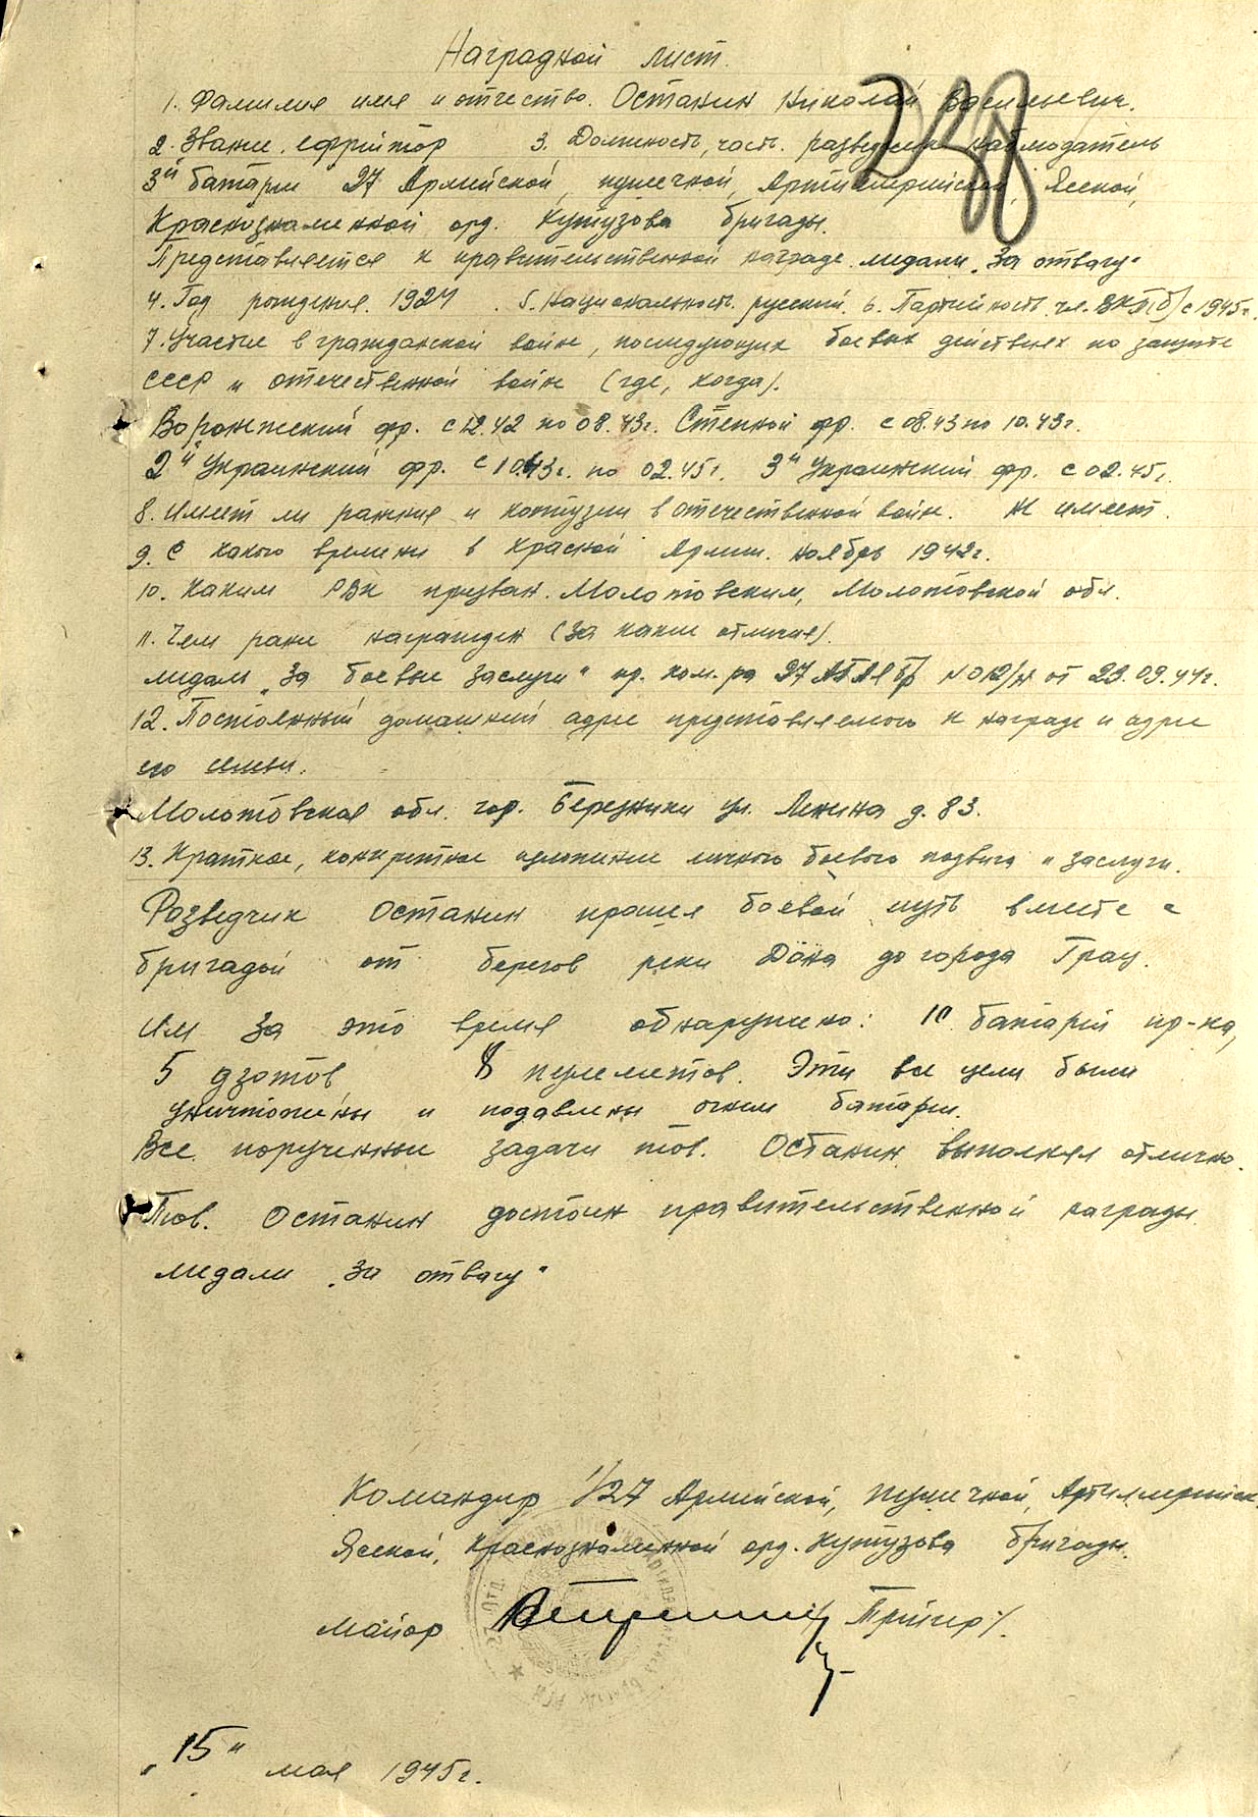 Наградной лист.
238
1. Фамилия имя и отчество. Останин Николай Васильевич.
2. Звание. ефрейтор 3. Должность, часть. разведчик наблюдатель
3й батареи 27 Армейской, пушечной, Артиллерийской, Ясской,
Краснознаменной орд. Кутузова бригады.
Представляется к правительственной награде медали „За отвагу"
4. Год рождения. 1924. 5. Национальность. русский. 6. Партийность чл. ВКП(б) с 1945г.
7. Участие в гражданской войне, последующих боевых действиях по защите
СССР и отечественной войне (где, когда).
Воронежский фр. с 12.42 по 08.43г. Степной фр. с 08.43 по 10.43г.
2й Украинский фр. с 10.43г. по 02.45г. 3й Украинский фр. с 02.45г.
8. Имеет ли ранения и контузии в отечественной войне. Не имеет.
9. С какого времени в Красной Армии. ноябрь 1942г.
10. Каким РВК призван. Молотовским, Молотовской обл.
11. Чем ранее награжден (за какие отличия).
медаль „За боевые заслуги" пр. ком-ра 27 АПАбр № 012/н от 23.09.44г.
12. Постоянный домашний адрес представляемого к награде и адрес
его семьи.
Молотовская обл. гор. Березники ул. Ленина д. 83.
13. Краткое, конкретное изложение личного боевого подвига и заслуги.
Разведчик Останин прошел боевой путь вместе с
бригадой от берегов реки Дона до города Грац.
Им за это время обнаружено: 10 батарей пр-ка,
5 дзотов 8 пулеметов. Эти все цели были
уничтожены и подавлены огнем батареи.
Все порученные задачи тов. Останин выполнял отлично.
Тов. Останин достоин правительственной награды
медали „За отвагу"
Командир 1/27 Армейской, пушечной, Артиллерийск.
Ясской, Краснознаменной орд. Кутузова бригады.
майор /Тригер/.
„15" мая 1945г.